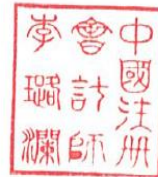 中國注册
會計師
李璐瀾